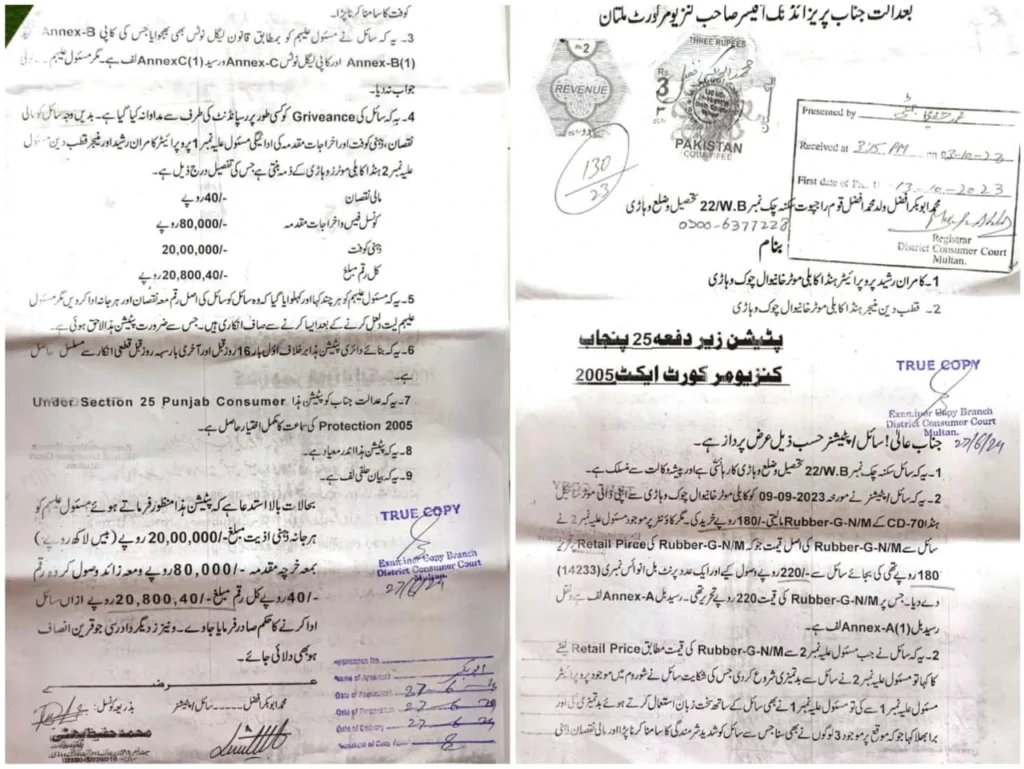 بعدالت جناب پریزائیڈنگ آفیسر صاحب کنزیومر کورٹ ملتان
Rs 2
REVENUE
THREE RUPEES
Rs. 3
PAKISTAN
COURT FEE
130
23
Presented by
Received at 3:15 PM on 03-10-23
First date of 13-10-2023
Registrar
District Consumer Court
Multan.
محمد ابوبکر افضل ولد محمد افضل قوم راجپوت سکنہ چک نمبر 22/W.B تحصیل و ضلع وہاڑی
0300-6377228
بنام
1- کامران رشید پروپرائیٹر ہنڈا کابلی موٹر خانیوال چوک وہاڑی
2- قطب دین منیجر ہنڈا کابلی موٹر خانیوال چوک وہاڑی
پٹیشن زیر دفعہ 25 پنجاب
کنزیومر کورٹ ایکٹ 2005
TRUE COPY
Examiner Copy Branch
District Consumer Court
Multan.
27/6/24
جناب عالی! سائل / پٹیشنر حسب ذیل عرض پرداز ہے۔
1- یہ کہ سائل سکنہ چک نمبر 22/W.B تحصیل و ضلع وہاڑی کا رہائشی ہے اور پیشہ وکالت سے منسلک ہے۔
2- یہ کہ سائل / پٹیشنر نے مورخہ 09-09-2023 کو کابلی موٹر خانیوال چوک وہاڑی سے اپنی ذاتی موٹر سائیکل
ہنڈا CD-70 کے Rubber-G-N/M مالیتی -/180 روپے خرید کی۔ مگر کاؤنٹر پر موجود مسئول علیہ نمبر 2 نے
سائل سے Rubber-G-N/M کی اصل قیمت جو کہ Rubber-G-N/M کی Retail Pirce تحریر
180 روپے تھی کی بجائے سائل سے -/220 روپے وصول کیے اور ایک عدد پرنٹ بل انوائس نمبری (14233)
دے دیا۔ جس پر Rubber-G-N/M کی قیمت 220 روپے تحریر تھی۔ رسید بل Annex-A لف ہے و نقل
رسید بل Annex-A(1) لف ہے۔
2- یہ کہ سائل نے جب مسئول علیہ نمبر 2 سے Rubber-G-N/M کی قیمت مطابق Retail Price لینے
کا کہا تو مسئول علیہ نمبر 2 نے سائل سے بدتمیزی شروع کر دی جس کی شکایت سائل نے شوروم میں موجود پروپرائیٹر
مسئول علیہ نمبر 1 سے کی تو مسئول علیہ نمبر 1 نے بھی سائل کے ساتھ سخت زبان استعمال کرتے ہوئے بدتمیزی کی اور
برا بھلا کہا جو کہ موقع پر موجود 3 لوگوں نے بھی سنا جس سے سائل کو شدید شرمندگی کا سامنا کرنا پڑا اور مالی نقصان ذہنی
کوفت کا سامنا کرنا پڑا۔
3- یہ کہ سائل نے مسئول علیہم کو بمطابق قانون لیگل نوٹس بھی بھجوایا جس کی کاپی Annex-B
Annex-B(1) اور کاپی لیگل نوٹس Annex-C و رسید AnnexC(1) لف ہے۔ مگر مسئول علیہم
جواب نہ دیا۔
4- یہ کہ سائل کی Griveance کو کسی طور پر رسپانڈنٹ کی طرف سے مداوا نہ کیا گیا ہے۔ بدیں وجہ سائل کو مالی
نقصان، ذہنی کوفت اور اخراجات مقدمہ کی ادائیگی مسئول علیہ نمبر 1 پروپرائیٹر کامران رشید اور منیجر قطب دین مسئول
علیہ نمبر 2 ہنڈا کابلی موٹرز وہاڑی کے ذمہ بنتی ہے جس کی تفصیل درج ذیل ہے۔
مالی نقصان -/40 روپے
کونسل فیس و اخراجات مقدمہ -/80,000 روپے
ذہنی کوفت -/20,00,000
کل رقم مبلغ -/20,800,40 روپے
5- یہ کہ مسئول علیہم کو ہر چند کہا اور کہلوایا گیا کہ وہ سائل کو سائل کی اصل رقم معہ نقصان اور ہرجانہ ادا کر دیں مگر مسئول
علیہم لیت و لعل کرنے کے بعد ایسا کرنے سے صاف انکاری ہیں۔ جس سے ضرورت پٹیشن ہذا لاحق ہوئی ہے۔
6- یہ کہ بنائے دائری پٹیشن ہذا برخلاف اول بار 16 روز قبل اور آخری بار سہ روز قبل قطعی انکار سے مسلسل حاصل
ہے۔
7- یہ کہ عدالت جناب کو پٹیشن ہذا Under Section 25 Punjab Consumer
Protection 2005 کی سماعت کا مکمل اختیار حاصل ہے۔
8- یہ کہ پٹیشن ہذا اندر معیاد ہے۔
9- یہ کہ بیان حلفی لف ہے۔
بحالات بالا استدعا ہے کہ پٹیشن ہذا منظور فرماتے ہوئے مسئول علیہم کو
ہرجانہ ذہنی اذیت مبلغ -/20,00,000 روپے (بیس لاکھ روپے)
بمعہ خرچہ مقدمہ -/80,000 روپے و معہ زائد وصول کردہ رقم
-/40 روپے کل رقم مبلغ -/20,800,40 روپے ازاں سائل
ادا کرنے کا حکم صادر فرمایا جاوے۔ و نیز دیگر دادرسی جو قرین انصاف
ہو بھی دلائی جائے۔
TRUE COPY
Examiner Copy Branch
District Consumer Court
Multan.
27/6/24
عرضے
محمد ابوبکر افضل سائل / پٹیشنر
بذریعہ کونسل:
محمد حفیظ بھٹی
Application No.
Name of Applicant ابوبکر
Date of Application 27-6-24
Date of Preparation 27-6-24
Date of Delivery 27-6-24
8